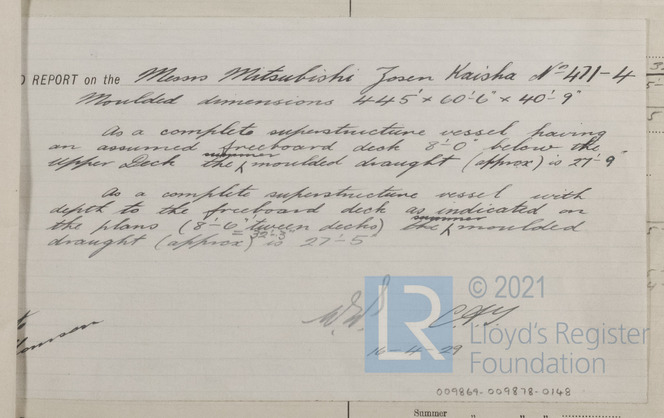 REPORT on the Messrs Mitsubishi Zosen Kaisha Nº 471-4
Moulded dimensions 445' x 60'-6" x 40'-9"
As a complete superstructure vessel having
an assumed freeboard deck 8'-0" below the
Upper Deck the summer moulded draught (approx) is 27'-9"
As a complete superstructure vessel with
depth to the freeboard deck as indicated on
the plans (8'-6" tween decks) the summer moulded
32'-3"
draught (approx) is 27'-5"
16-4-29
© 2021
LR
Lloyd's Register
Foundation
009869-009878-0148
Summer